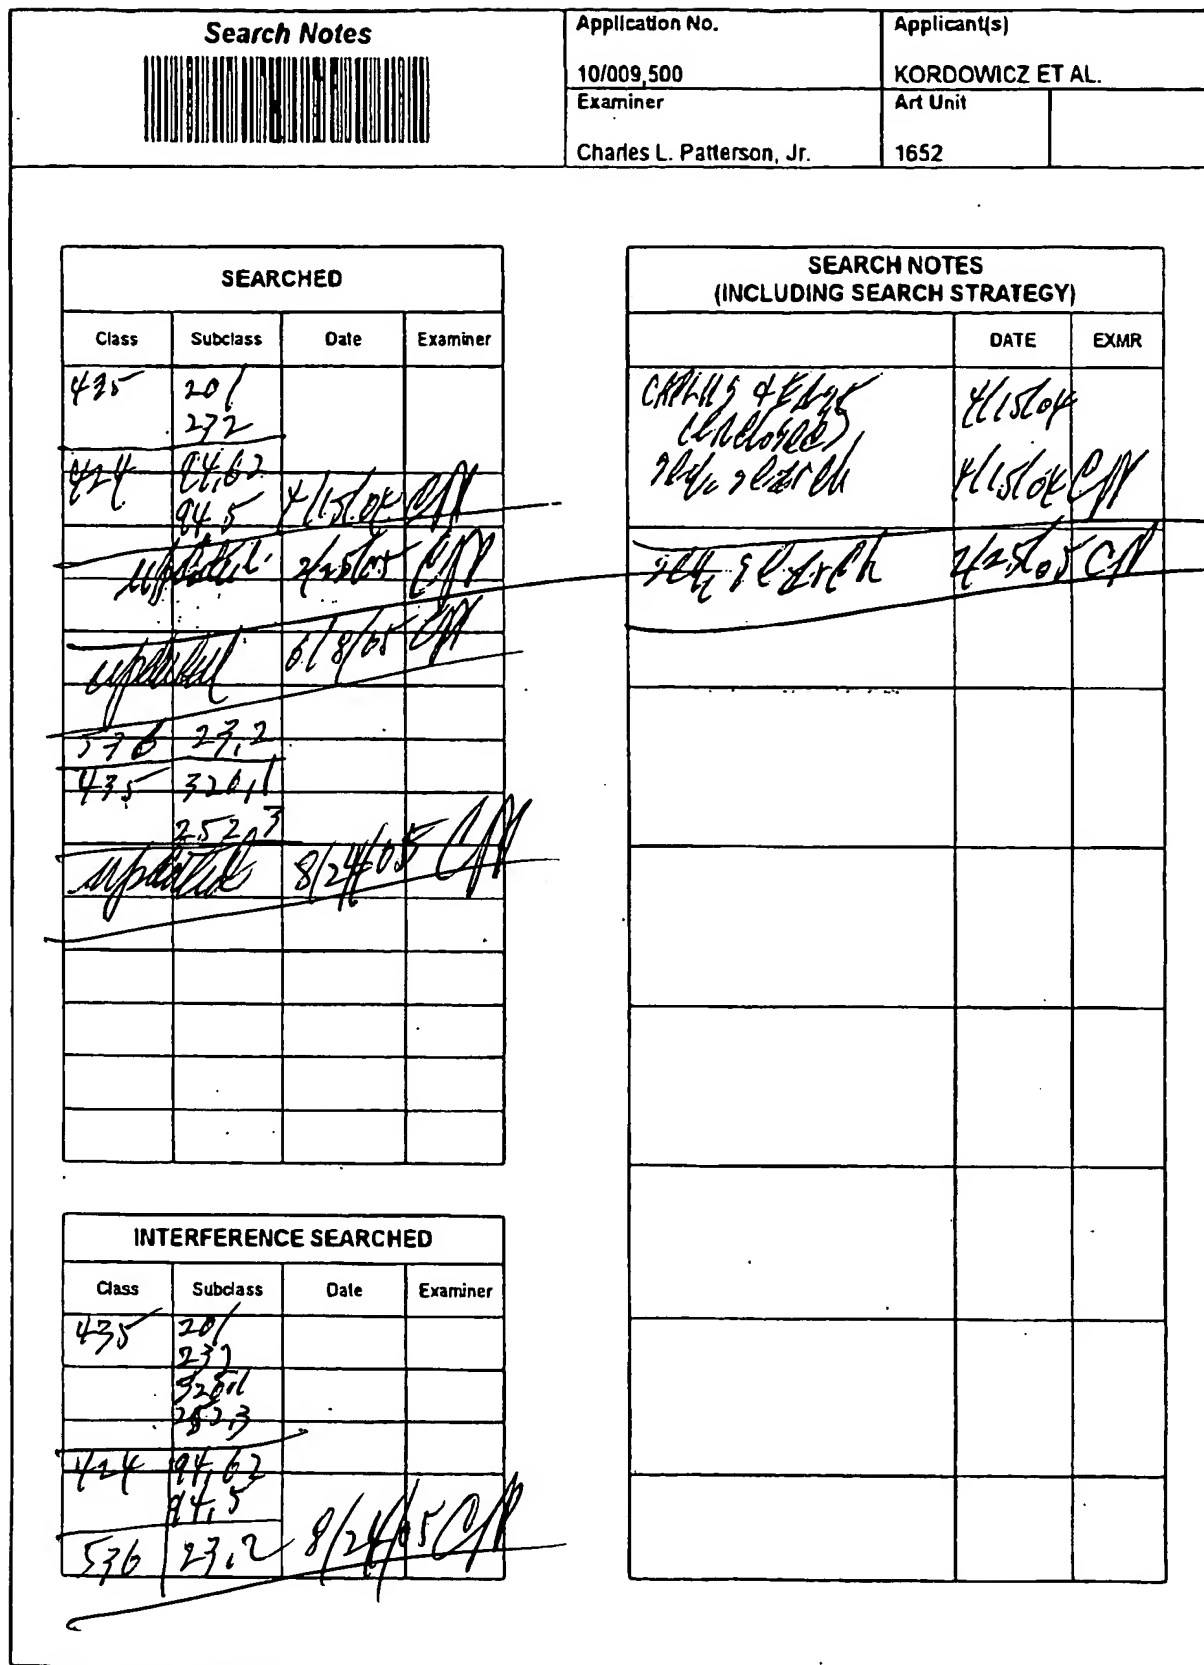 Search Notes
Application No.
10/009,500
Applicant(s)
KORDOWICZ ET AL.
Examiner
Charles L. Patterson, Jr.
Art Unit
1652
SEARCHED
Class Subclass Date Examiner
435 201
232
424 94.62
94.5 4/15/04 CP
updated 2/25/05 CP
updated 6/8/05 CP
536 23.2
435 320.1
252.3
updated 8/24/05 CP
SEARCH NOTES
(INCLUDING SEARCH STRATEGY)
DATE EXMR
CAPLUS
(enclosed) 4/15/04
seq. search 4/15/04 CP
seq. search 2/25/05 CP
INTERFERENCE SEARCHED
Class Subclass Date Examiner
435 201
232
320.1
252.3
424 94.62
94.5
536 23.2 8/24/05 CP